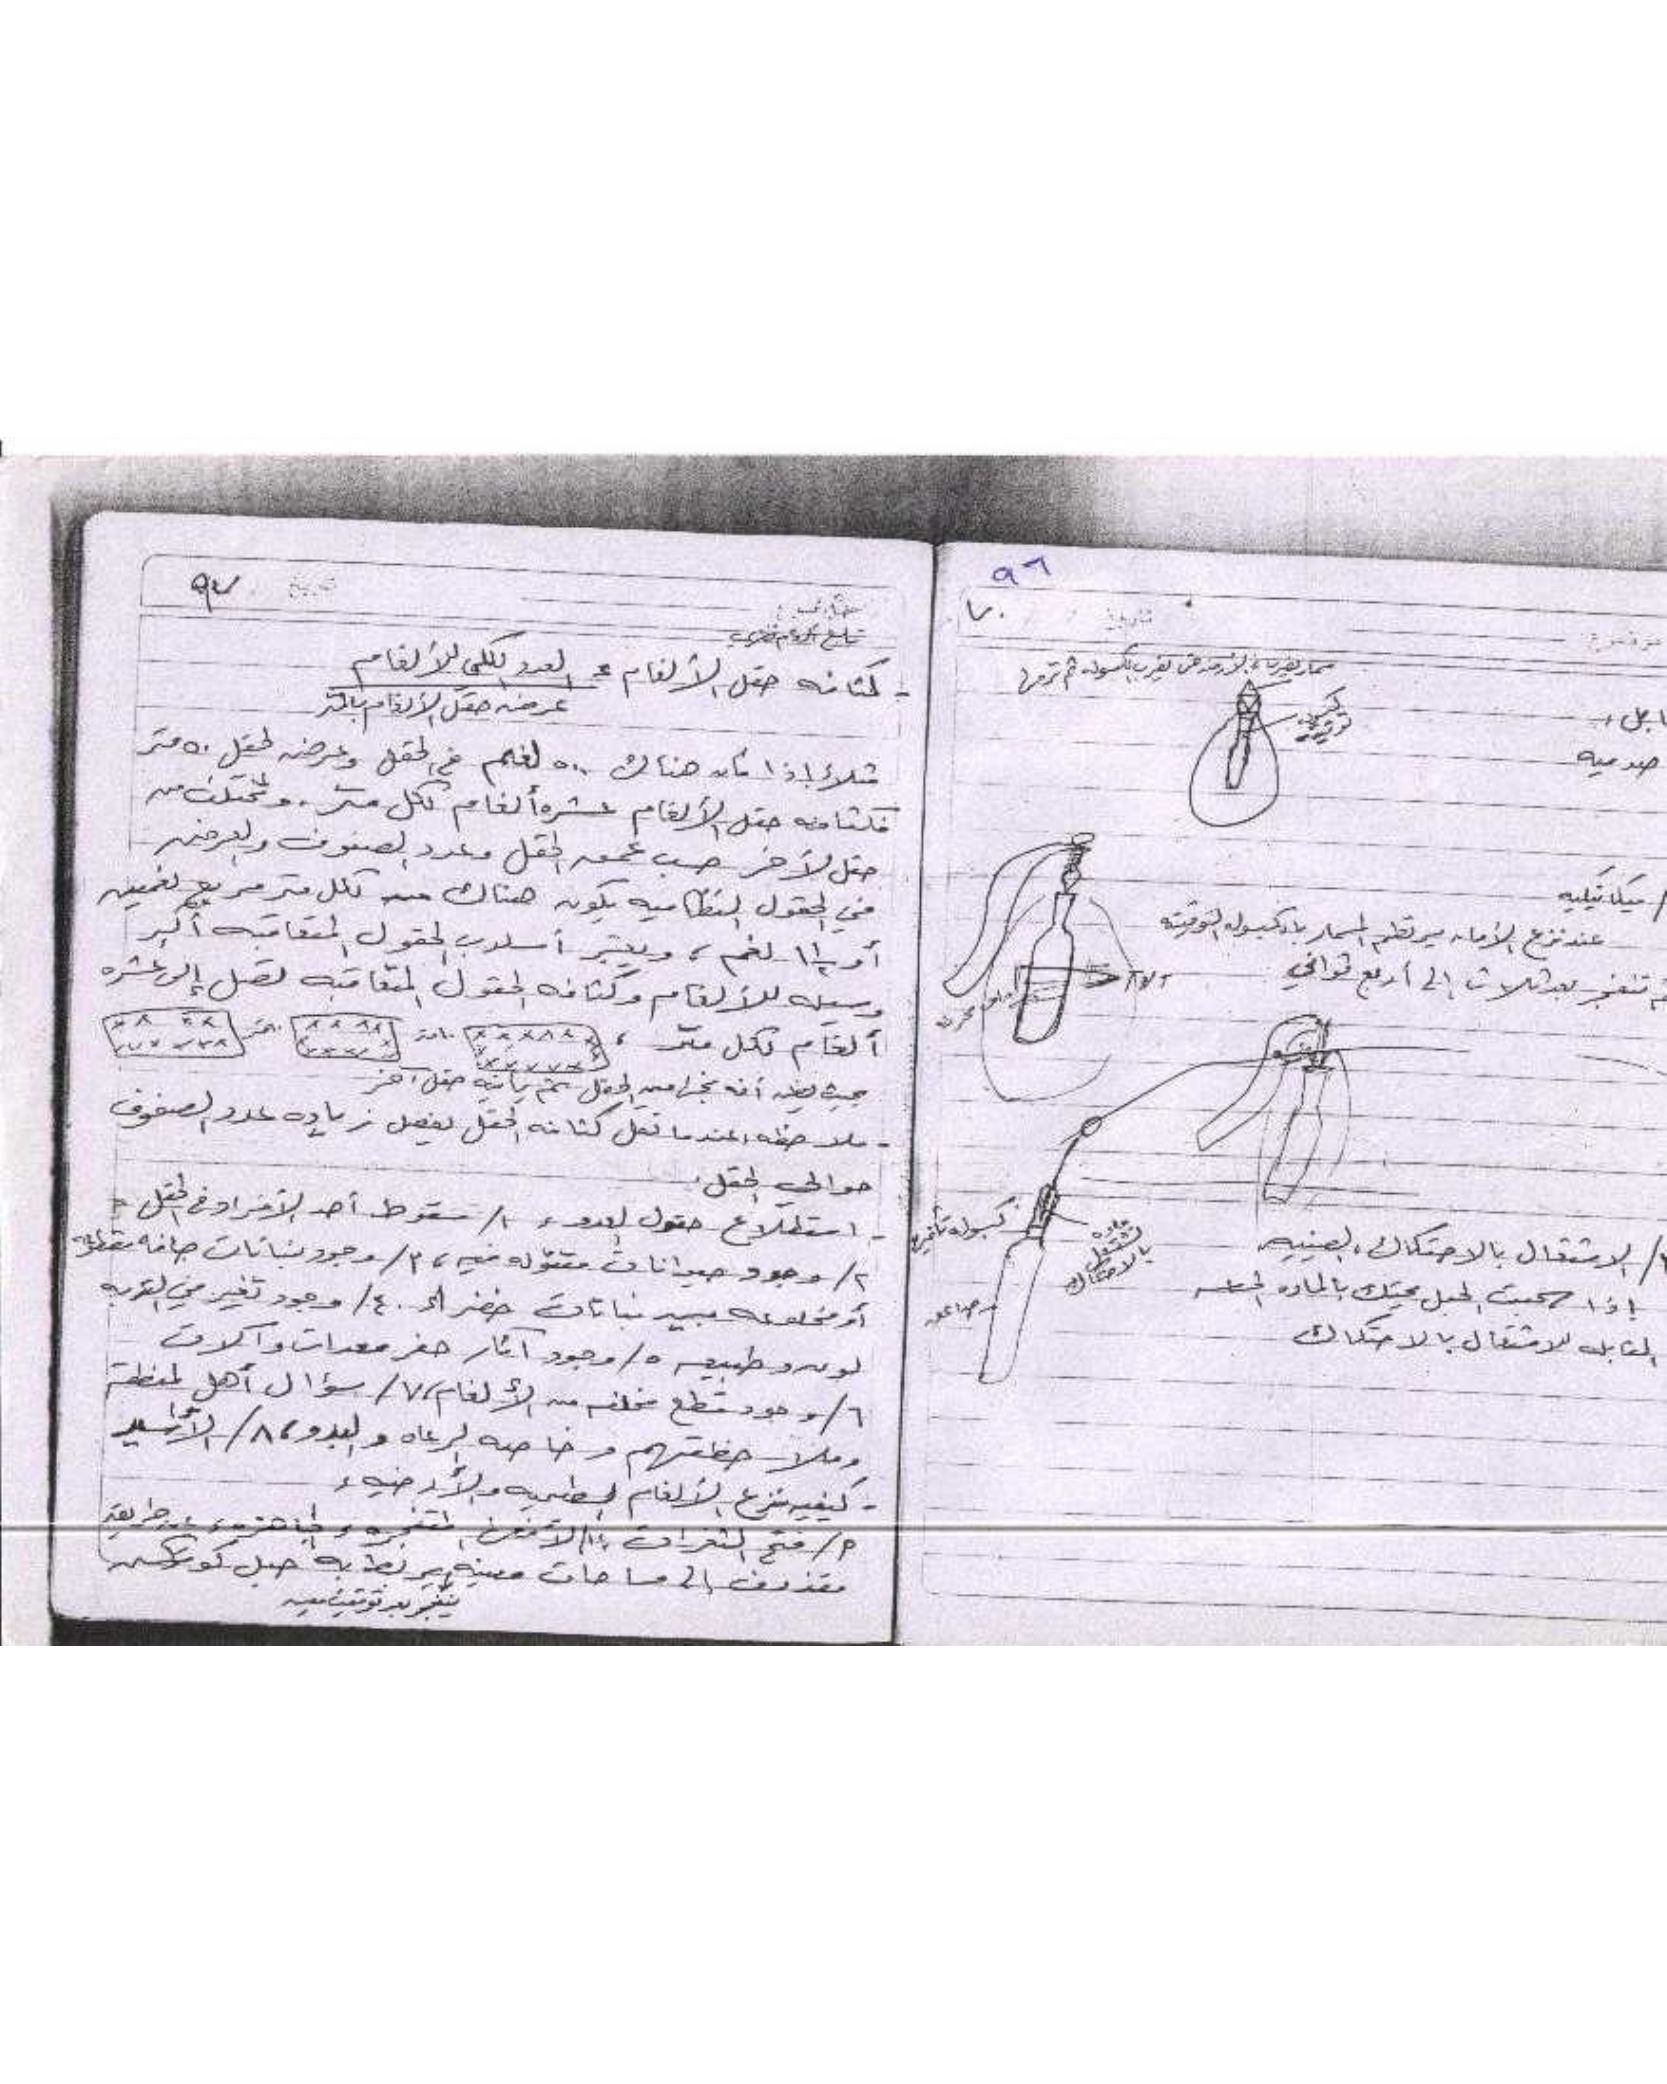 ٩٦
٧٠
تاريخ
مسمار يضرب بالأرض حتى يضرب الكبسوله ثم ترميها
صدميه
ميكانيكيه
عند نزع الأمان يرتطم المسمار بالكبسوله التوقيتيه
ثم تنفجر بعد ثلاث إلى أربع ثواني
أمان
كبسوله تأخيريه
ماده تشتعل بالاحتكاك
صاعق
/ الاشتعال بالاحتكاك الصينيه
إذا سحبت الحبل يحتك بالماده الحساسه
القابله للاشتعال بالاحتكاك
٩٧
تاريخ
- كثافه حقل الألغام = العدد الكلي للألغام
عرض حقل الألغام بالمتر
مثلاً إذا كان هناك ٥٠٠ لغم في الحقل وعرض الحقل ٥٠ متر
فكثافه حقل الألغام عشره ألغام لكل متر . وتختلف من
حقل لآخر حسب عمق الحقل وعدد الصفوف والعرض
في الحقول النظاميه يكون هناك لكل متر مربع لغمين
أو لغم ، ويعتبر أسلوب الحقول المتعاقبه أكبر
وسيله للألغام وكثافه الحقول المتعاقبه تصل إلى عشره
ألغام لكل متر ،
بحيث يظن أنه نجا من الحقل ثم يأتيه حقل آخر
- ملاحظه : عندما تقل كثافه الحقل يفضل زياده عدد الصفوف
حوالي الحقل .
- استطلاع حقول العدو : ١/ سقوط أحد الأفراد في الحقل
٢/ وجود حيوانات مقتوله فيه ، ٣/ وجود نباتات جافه مقطوعه
أو مخلوعه بين نباتات خضراء . ٤/ وجود تغير في التربه
لون وطبيعه ٥/ وجود آثار حفر معدات وآلات
٦/ وجود قطع مخلفه من الألغام ، ٧/ سؤال أهل المنطقه
وملاحظتهم وخاصه الرعاه والبدو ، ٨/ الأسير
- كيفيه نزع الألغام السطحيه والأرضيه :
٢/ فتح الثغرات المتفجره الجاهزه : عن طريق
مقذوف إلى مساحات معينه يربط به حبل
ينفجر بعد توقيت معين